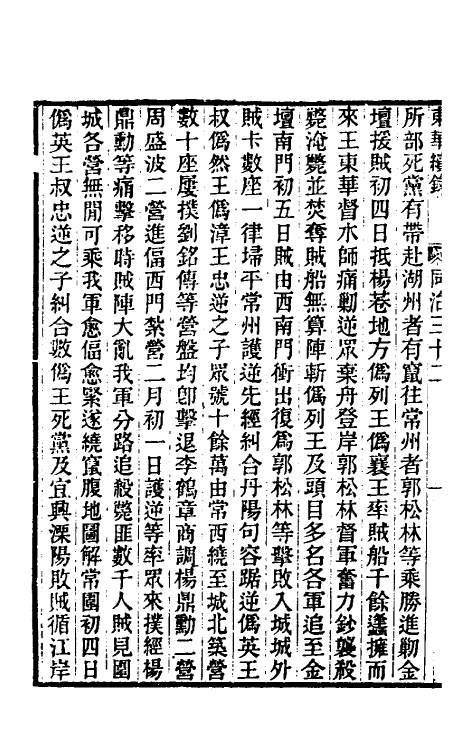 東華續錄 同治三十二 一
所部死黨有帶赴湖州者有竄往常州者郭松林等乘勝進勦金
壇援賊初四日抵楊巷地方僞列王僞襄王率賊船千餘蠭擁而
來王東華督水師痛勦逆眾棄舟登岸郭松林督軍奮力鈔襲殺
斃淹斃並焚奪賊船無算陣斬僞列王及頭目多名各軍追至金
壇南門初五日賊由西南門衝出復爲郭松林等擊敗入城城外
賊卡數座一律埽平常州護逆先經糾合丹陽句容踞逆僞英王
叔僞然王僞漳王忠逆之子眾號十餘萬由常西繞至城北築營
數十座屢撲劉銘傳等營盤均卽擊退李鶴章商調楊鼎勳二營
周盛波二營進偪西門紮營二月初一日護逆等率眾來撲經楊
鼎勳等痛擊移時賊陣大亂我軍分路追殺斃匪數千人賊見圍
城各營無閒可乘我軍愈偪愈緊遂繞竄腹地圖解常圍初四日
僞英王叔忠逆之子糾合數僞王死黨及宜興溧陽敗賊循江岸